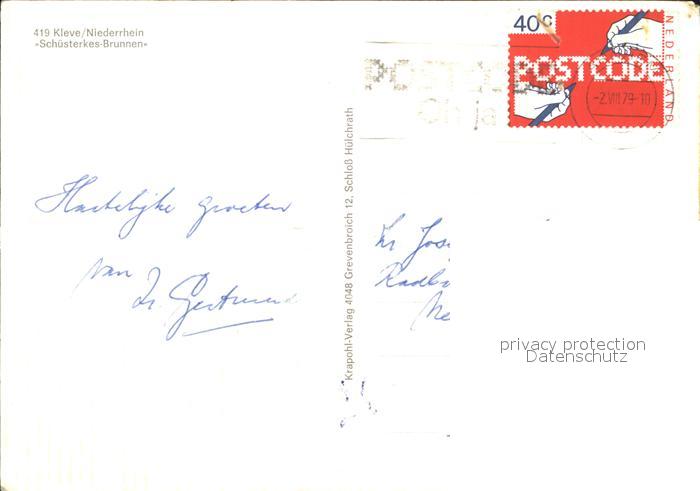 419 Kleve/Niederrhein
»Schüsterkes-Brunnen«
40c
NEDERLAND
POSTCODE
-2.VIII.79-10
Krapohl-Verlag 4048 Grevenbroich 12, Schloß Hülchrath
Hartelijke groeten
van
Zr. Gertrud
Zr Jos
Radb
Ne
privacy protection
Datenschutz